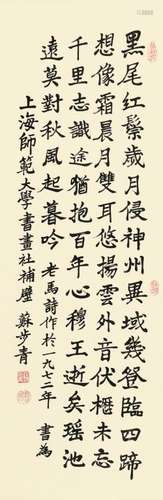 黑尾紅鬃歲月侵神州異域幾登臨四蹄
想像霜晨月雙耳悠揚雲外音伏櫪未忘
千里志識途猶抱百年心穆王逝矣瑤池
遠莫對秋風起暮吟 老馬詩作於一九七二年 書為
上海師範大學書畫社補壁 蘇步青